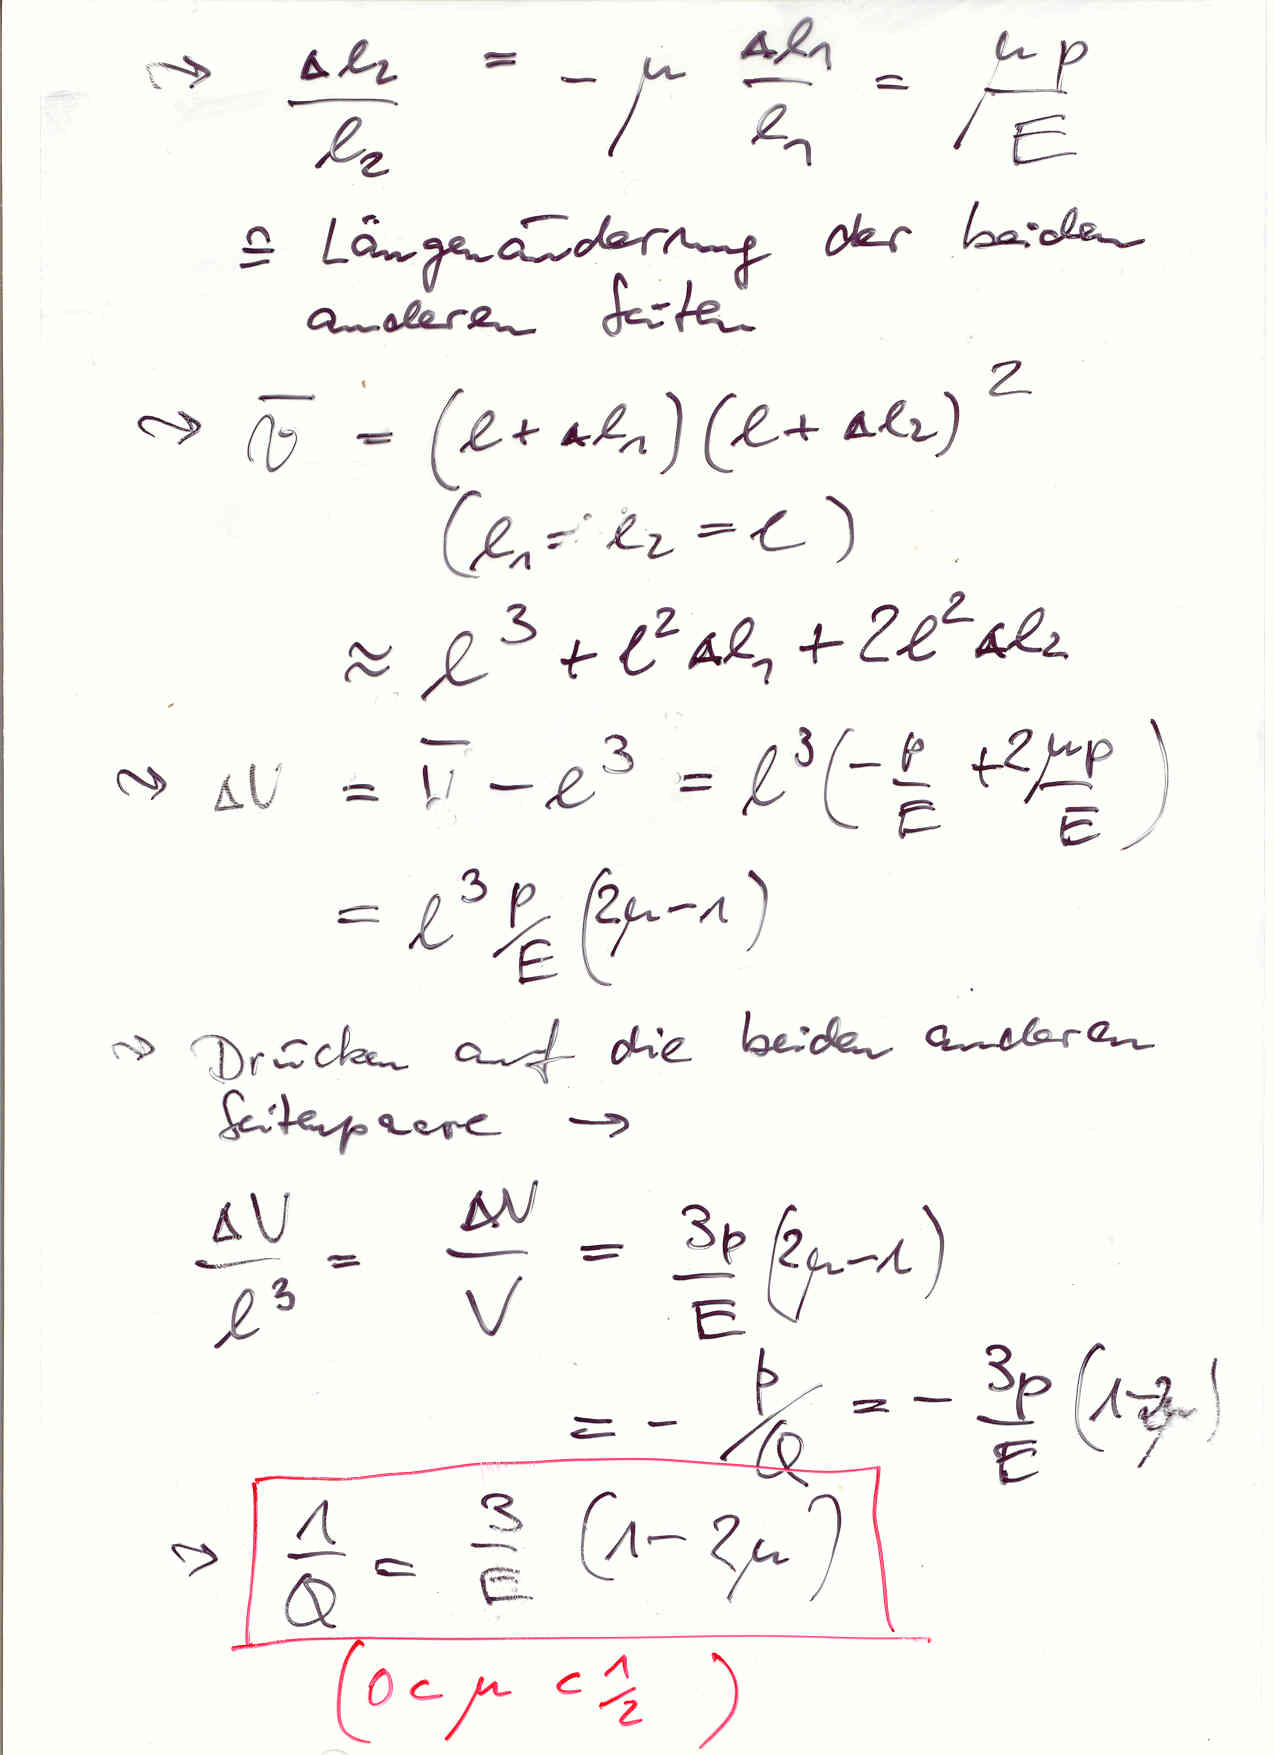 ⤳ Δl₂/l₂ = - μ Δl₁/l₁ = μp/E
≙ Längenänderung der beiden
anderen Seiten
⤳ V̅ = (l + Δl₁)(l + Δl₂)²
(l₁ = l₂ = l)
≈ l³ + l² Δl₁ + 2l² Δl₂
⤳ ΔV = V̅ - l³ = l³(- p/E + 2 μp/E)
= l³ p/E (2μ-1)
⤳ Drücken auf die beiden anderen
Seitenpaare →
ΔV/l³ = ΔV/V = 3p/E (2μ-1)
= - p/Q = - 3p/E (1-2μ)
⤳ 1/Q = 3/E (1-2μ)
(0 < μ < 1/2)